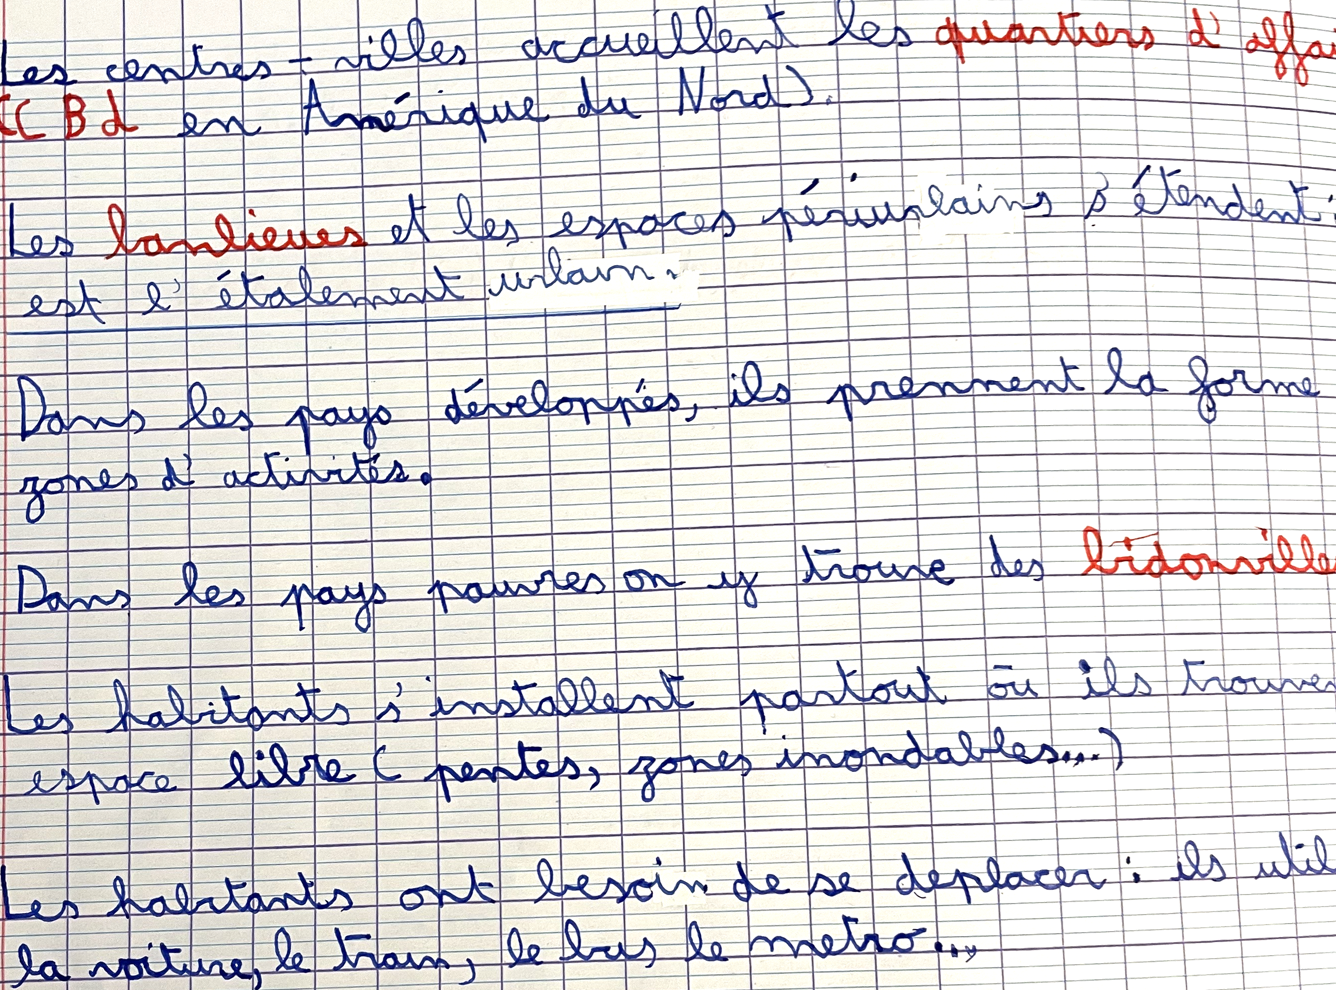 Les centres-villes accueillent les quartiers d'affai
(CBd en Amérique du Nord).
Les banlieues et les espaces périurbains s'étendent :
est l'étalement urbain.
Dans les pays développés, ils prennent la forme
zones d'activités.
Dans les pays pauvres on y trouve des bidonville
Les habitants s'installent partout où ils trouve
espace libre ( pentes, zones inondables...)
Les habitants ont besoin de se deplacer : ils util
la voiture, le train, le bus le metro...